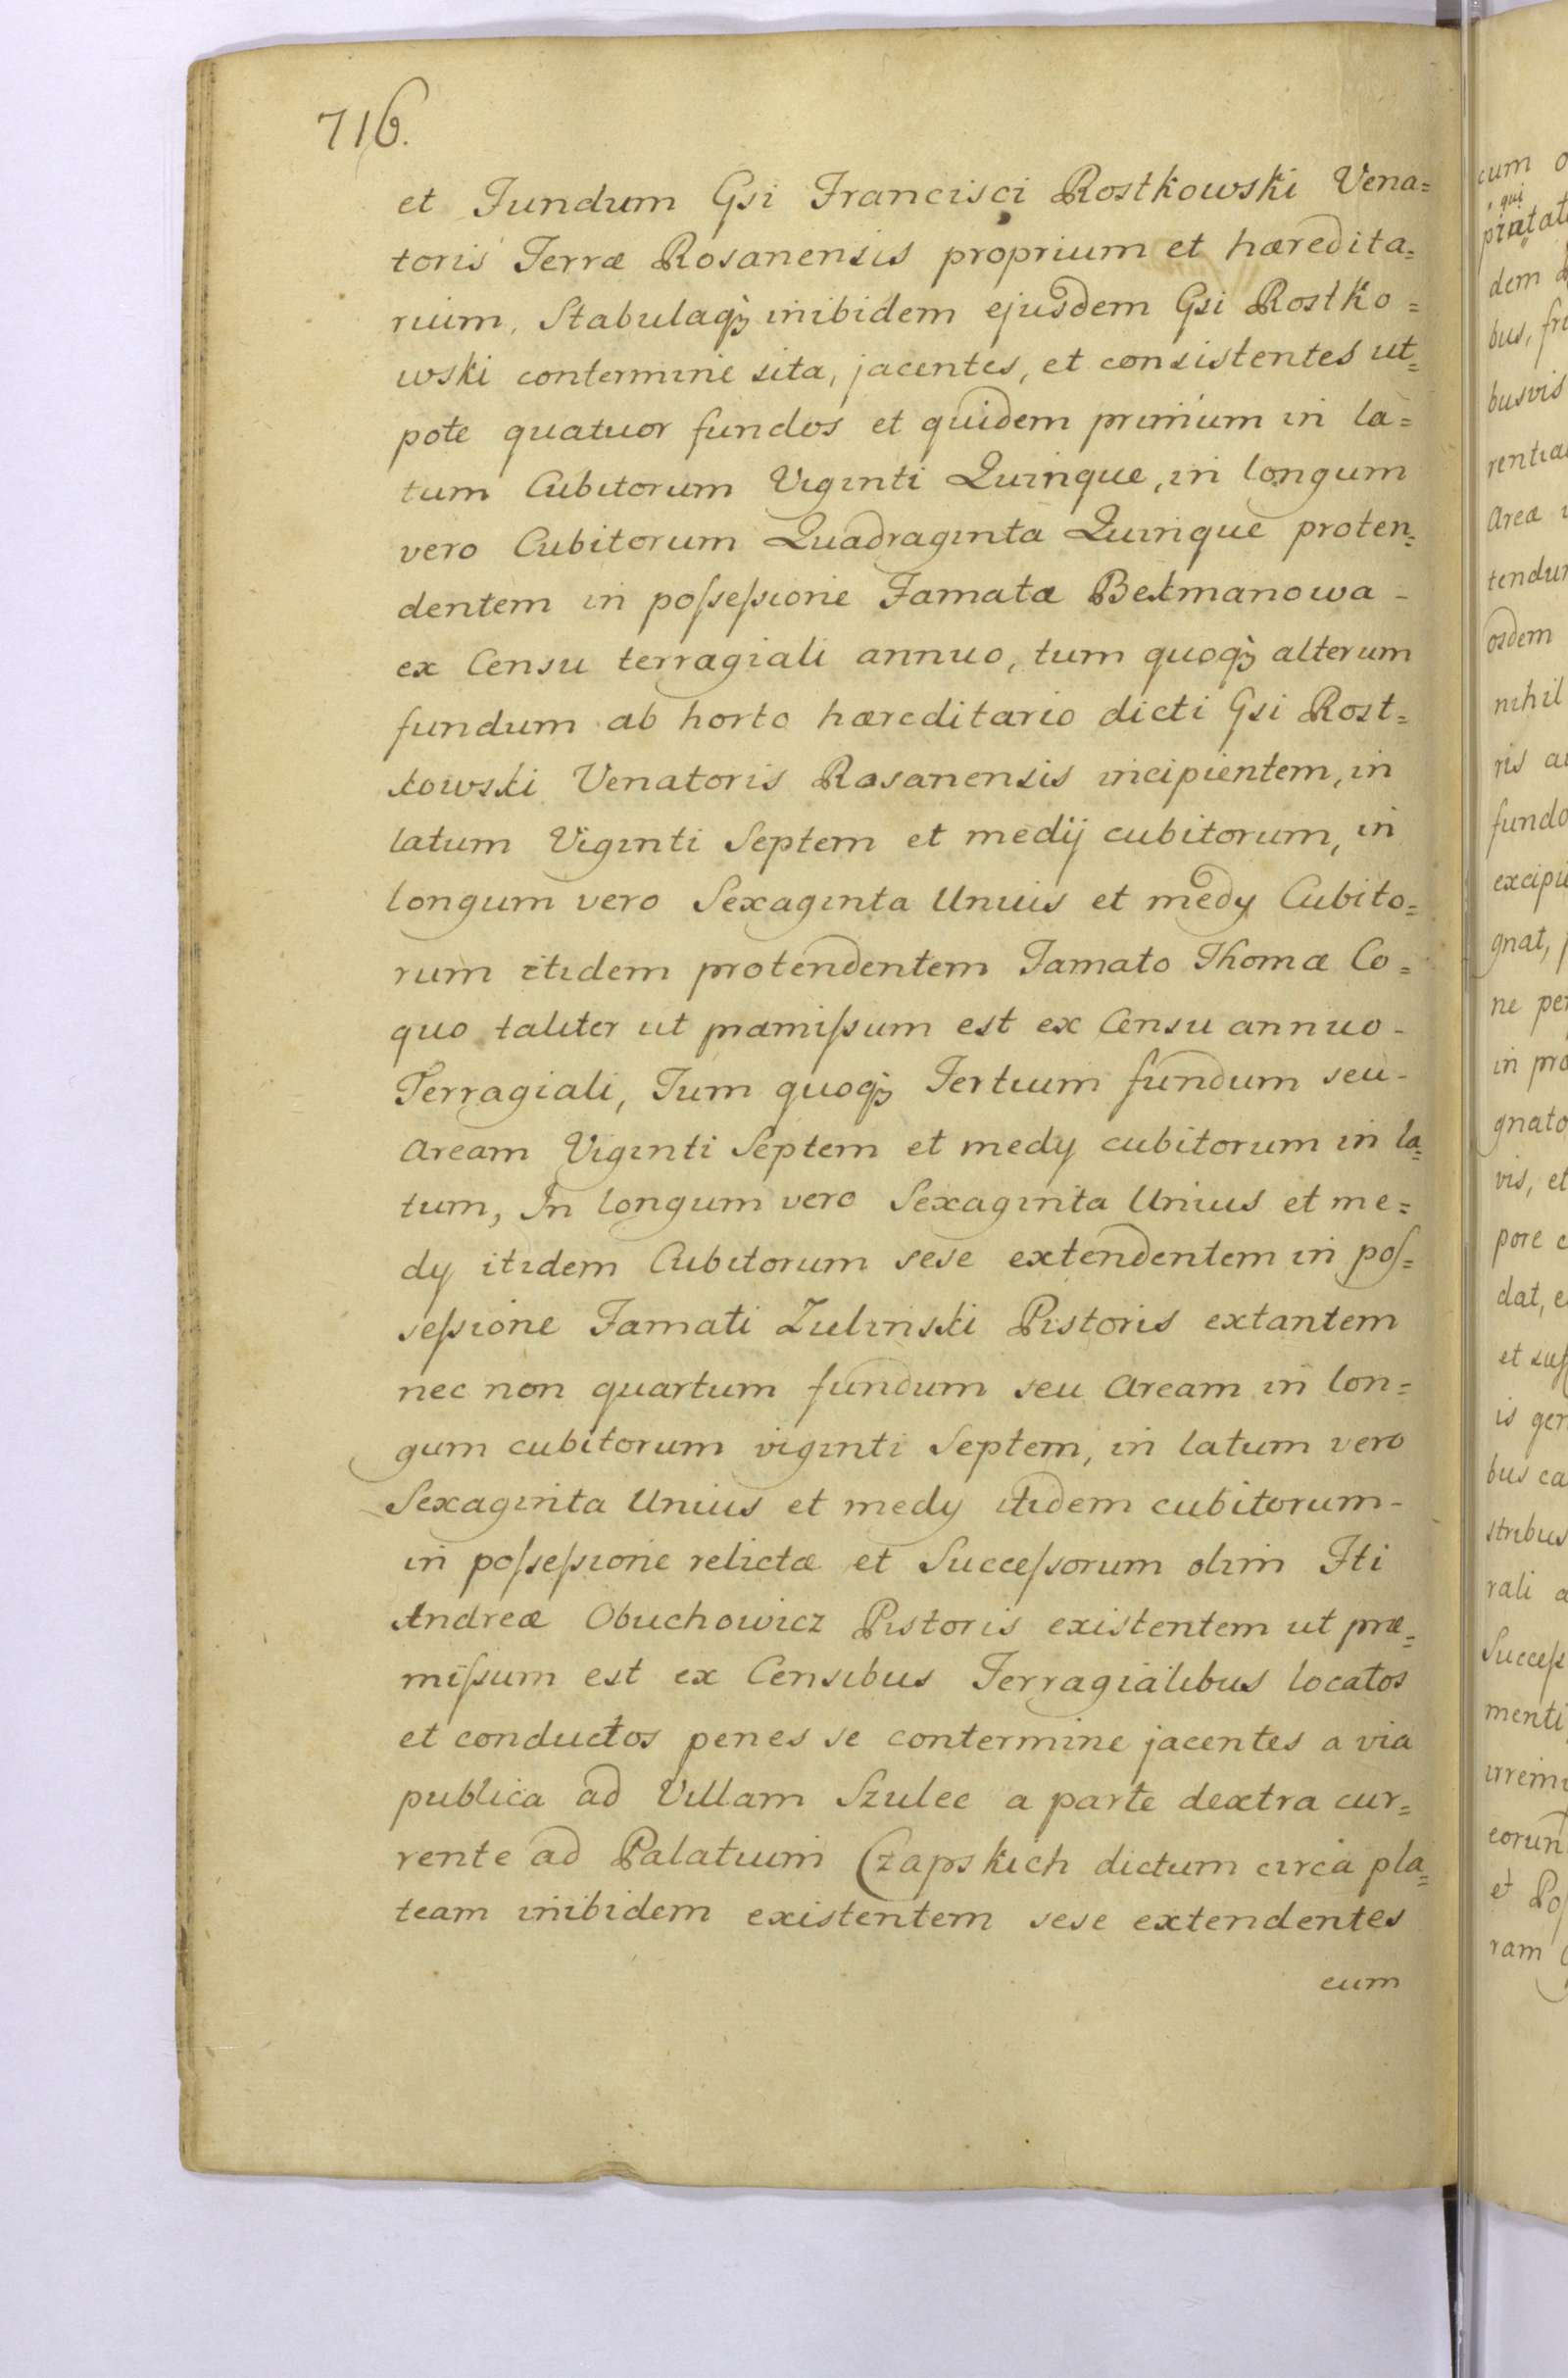 716.
et Fundum Gsi Francisci Rostkowski Vena=
toris Terræ Rosanensis proprium et hæredita=
rium, Stabulaqȝ inibidem ejusdem Gsi Rostko=
wski contermine sita, jacentes, et consistentes ut=
pote quatuor fundos et quidem primum in la=
tum Cubitorum Viginti Quinque, in longum
vero Cubitorum Quadraginta Quinque proten=
dentem in poſseſsione Famatæ Betmanowa -
ex Censu terragiali annuo, tum quoqȝ alterum
fundum ab horto hæreditario dicti Gsi Rost=
kowski Venatoris Rosanensis incipientem, in
latum Viginti Septem et medij cubitorum, in
longum vero Sexaginta Unius et medy Cubito=
rum itidem protendentem Famato Thomæ Co=
quo taliter ut præmiſsum est ex Censu annuo -
Terragiali, Tum quoqȝ Tertium fundum seu -
Aream Viginti Septem et medy cubitorum in la=
tum, In longum vero Sexaginta Unius et me=
dy itidem Cubitorum sese extendentem in poſ=
seſsione Famati Zulinski Pistoris extantem
nec non quartum fundum seu Aream in lon=
gum cubitorum viginti Septem, in latum vero
Sexaginta Unius et medy itidem cubitorum -
in poſseſsione relictæ et Succeſsorum olim Fti
Andreæ Obuchowicz Pistoris existentem ut præ=
miſsum est ex Censibus Terragialibus locatos
et conductos penes se contermine jacentes a via
publica ad Villam Szulec a parte dextra cur=
rente ad Palatium Czapskich dictum circa pla=
team inibidem existentem sese extendentes
cum
cum
qui
dem
bus,
busvis
Area
osdem
nihil
ris
ne
in
vis, et
pore
dat,
et
is
bus
et
ram